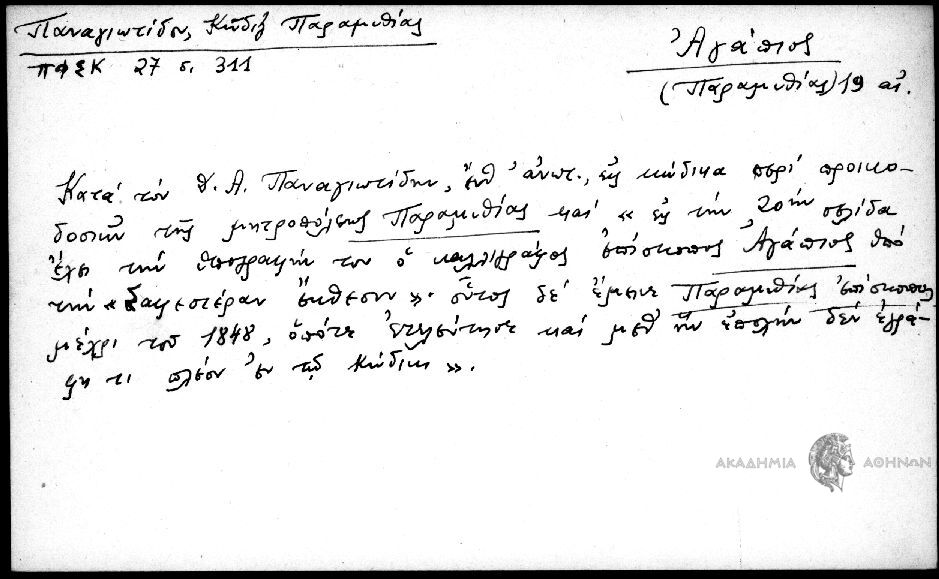 Παναγιωτίδου, Κῶδιξ Παραμυθίας
ΠΦΣΚ 27 σ. 311
Ἀγάπιος
(Παραμυθίας) 19 αἰ.
Κατά τόν Θ. Α. Παναγιωτίδην, ἔνθ' ἀνωτ., εἰς κώδικα περί προικο-
δοσιῶν τῆς μητροπόλεως Παραμυθίας καί « εἰς τήν 20ήν σελίδα
ἔχει τήν ὑπογραφήν του ὁ καλλιγράφος ἐπίσκοπος Ἀγάπιος ὑπό
τήν « Σαφεστέραν ἔκθεσιν ». οὗτος δέ ἔμεινε Παραμυθίας ἐπίσκοπος
μέχρι τοῦ 1848, ὁπότε ἐτελεύτησε καί μεθ' ἥν ἐποχήν δέν ἐγρά-
φη τι πλέον ἐν τῷ Κώδικι ».
ΑΚΑΔΗΜΙΑ ΑΘΗΝΩΝ